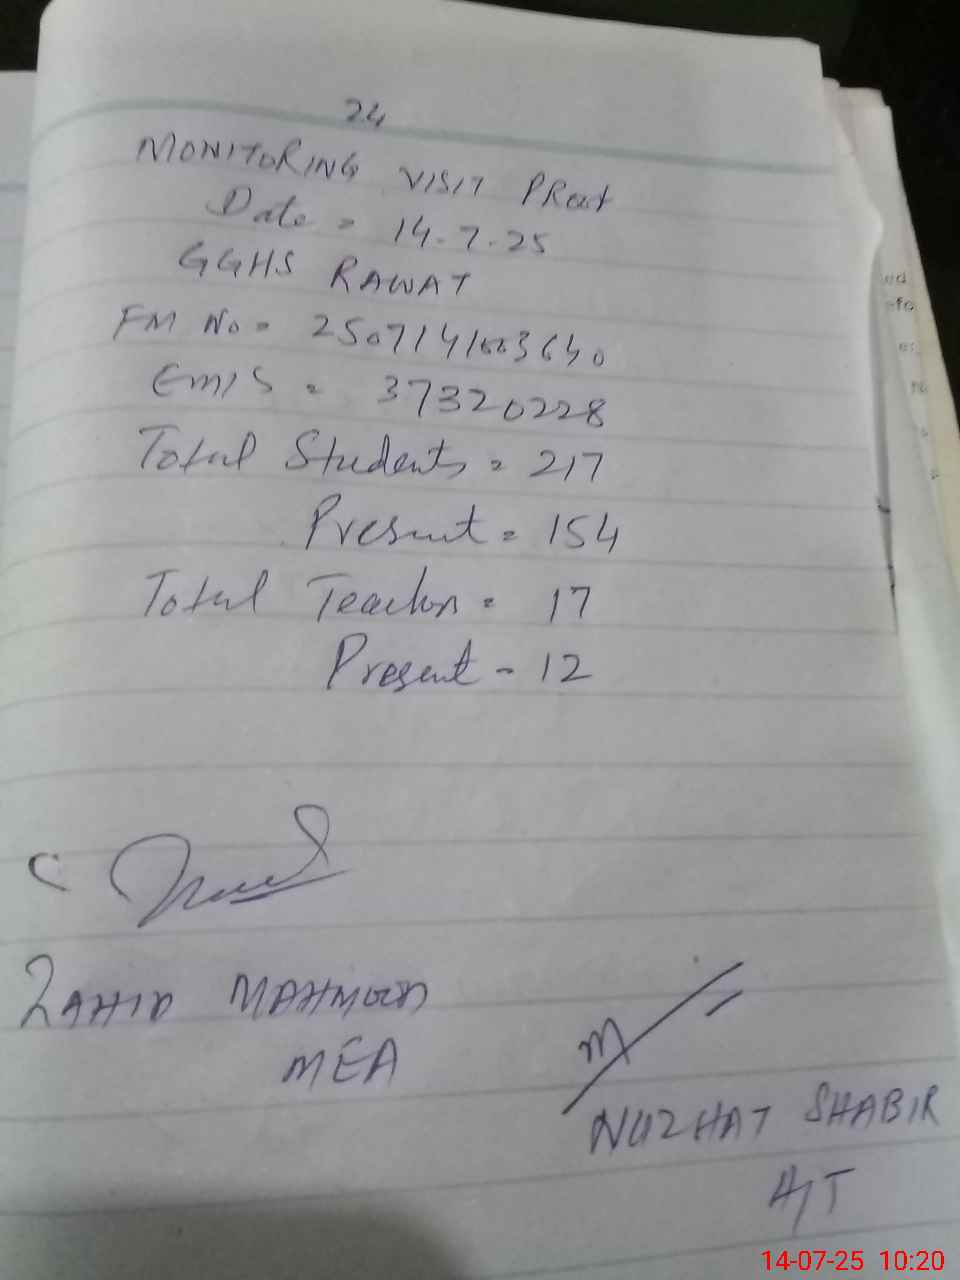 24
MONITORING VISIT PRoof
Date = 14-7-25
GGHS RAWAT
FM No =
EMIS = 37320228
Total Students = 217
Present = 154
Total Teachers = 17
Present - 12
ZAHID MAHMOOD
MEA
NUZHAT SHABIR
14-07-25 10:20